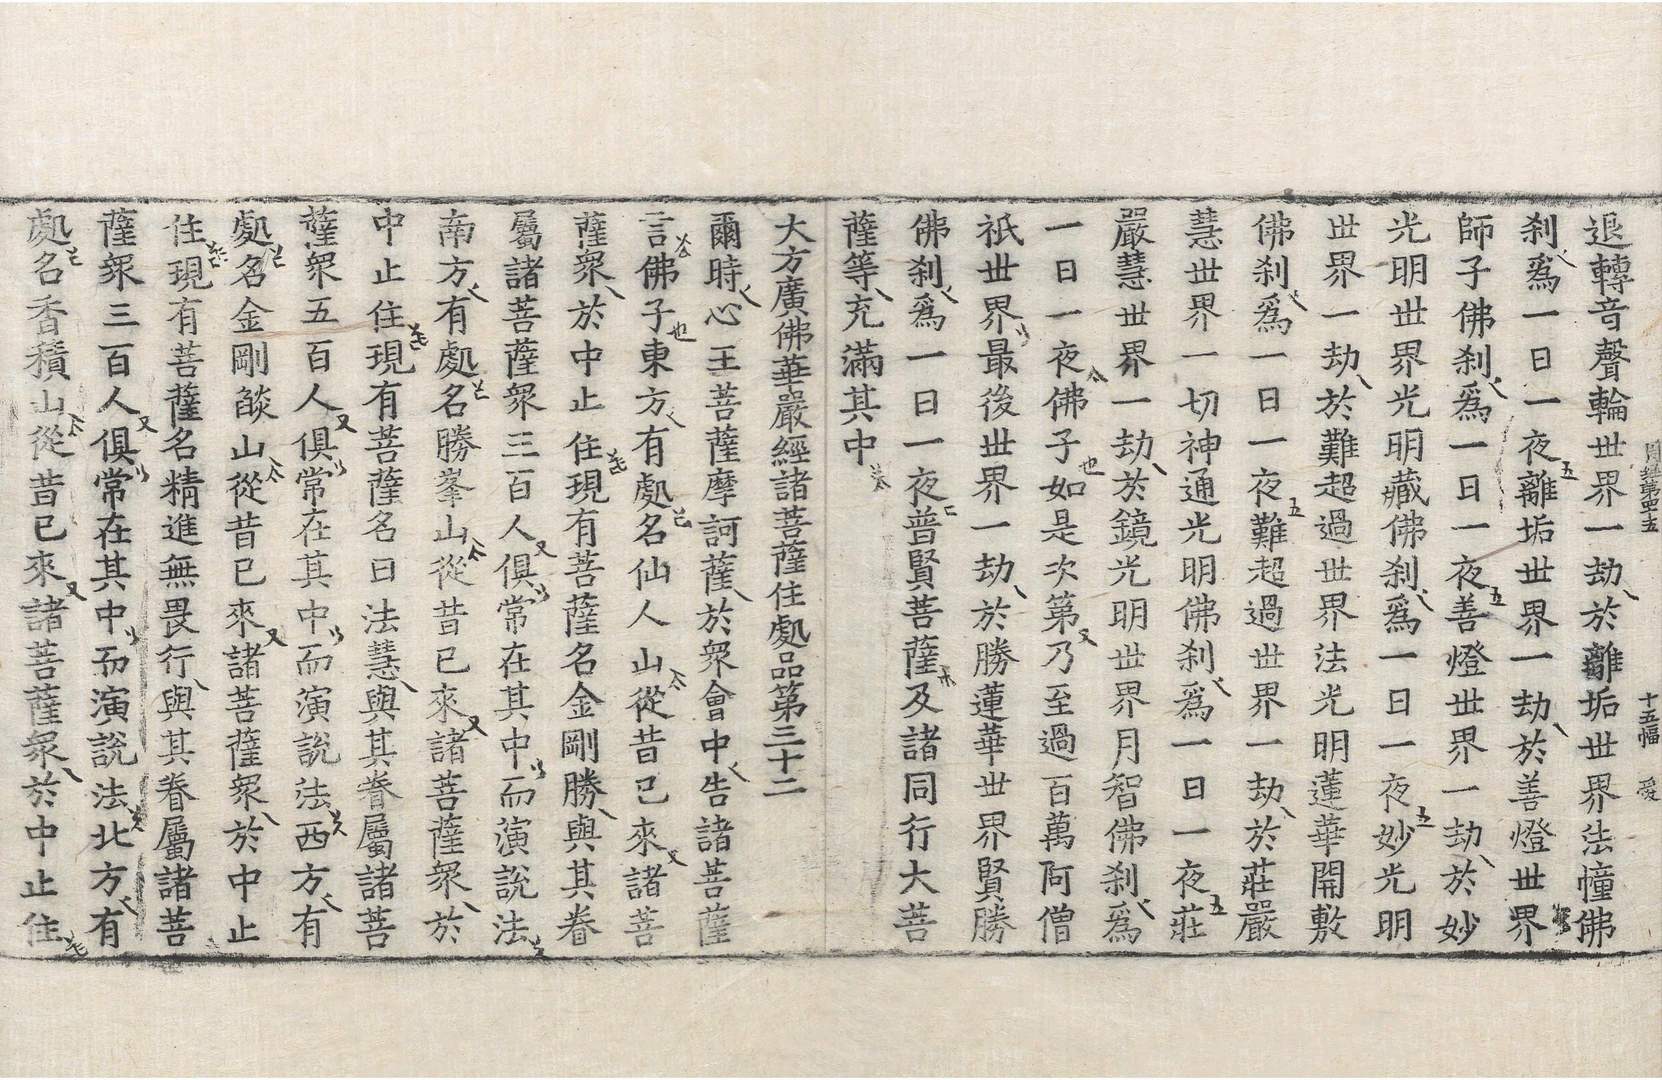 十五幅 愛
退轉音聲輪世界一劫於離垢世界法幢佛
刹爲一日一夜離垢世界一劫於善燈世界
師子佛刹爲一日一夜善燈世界一劫於妙
光明世界光明藏佛刹爲一日一夜妙光明
世界一劫於難超過世界法光明蓮華開敷
佛刹爲一日一夜難超過世界一劫於莊嚴
慧世界一切神通光明佛刹爲一日一夜莊
嚴慧世界一劫於鏡光明世界月智佛刹爲
一日一夜佛子如是次第乃至過百萬阿僧
祇世界最後世界一劫於勝蓮華世界賢勝
佛刹爲一日一夜普賢菩薩及諸同行大菩
薩等充滿其中
大方廣佛華嚴經諸菩薩住處品第三十二
爾時心王菩薩摩訶薩於衆會中告諸菩薩
言佛子東方有處名仙人山從昔已來諸菩
薩衆於中止住現有菩薩名金剛勝與其眷
屬諸菩薩衆三百人俱常在其中而演說法
南方有處名勝峯山從昔已來諸菩薩衆於
中止住現有菩薩名曰法慧與其眷屬諸菩
薩衆五百人俱常在其中而演說法西方有
處名金剛燄山從昔已來諸菩薩衆於中止
住現有菩薩名精進無畏行與其眷屬諸菩
薩衆三百人俱常在其中而演說法北方有
處名香積山從昔已來諸菩薩衆於中止住